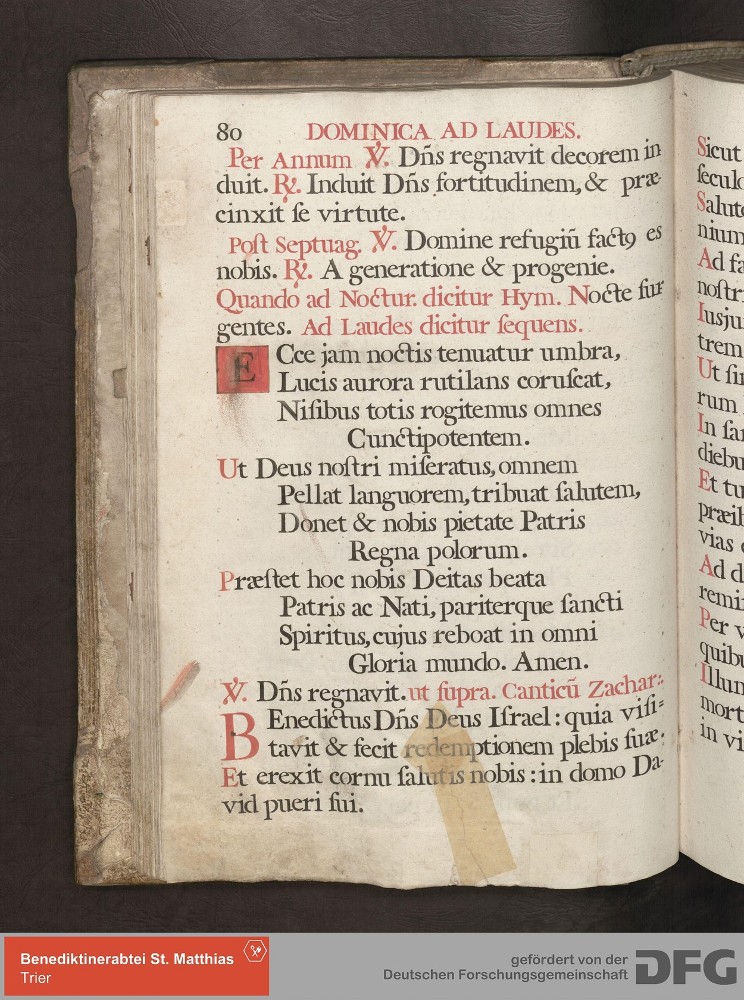 80 DOMINICA AD LAUDES.
Per Annum ℣. Dn̄s regnavit decorem in
duit. ℟. Induit Dn̄s fortitudinem, & præ-
cinxit ſe virtute.
Poſt Septuag. ℣. Domine refugiū factꝰ es
nobis. ℟. A generatione & progenie.
Quando ad Noctur. dicitur Hym. Nocte ſur
gentes. Ad Laudes dicitur ſequens.
ECce jam noctis tenuatur umbra,
Lucis aurora rutilans coruſcat,
Niſibus totis rogitemus omnes
Cunctipotentem.
Ut Deus noſtri miſeratus, omnem
Pellat languorem, tribuat ſalutem,
Donet & nobis pietate Patris
Regna polorum.
Præſtet hoc nobis Deitas beata
Patris ac Nati, pariterque ſancti
Spiritus, cujus reboat in omni
Gloria mundo. Amen.
℣. Dn̄s regnavit. ut ſupra. Canticū Zachar:
BEnedictus Dn̄s Deus Iſrael: quia viſi=
tavit & fecit redemptionem plebis ſuæ.
Et erexit cornu ſalutis nobis: in domo Da-
vid pueri ſui.
Sicut
Ad
Ut
In
diebu
Et tu
vias
Ad d
Per
in vi
Benediktinerabtei St. Matthias
Trier
gefördert von der
Deutschen Forschungsgemeinschaft
DFG